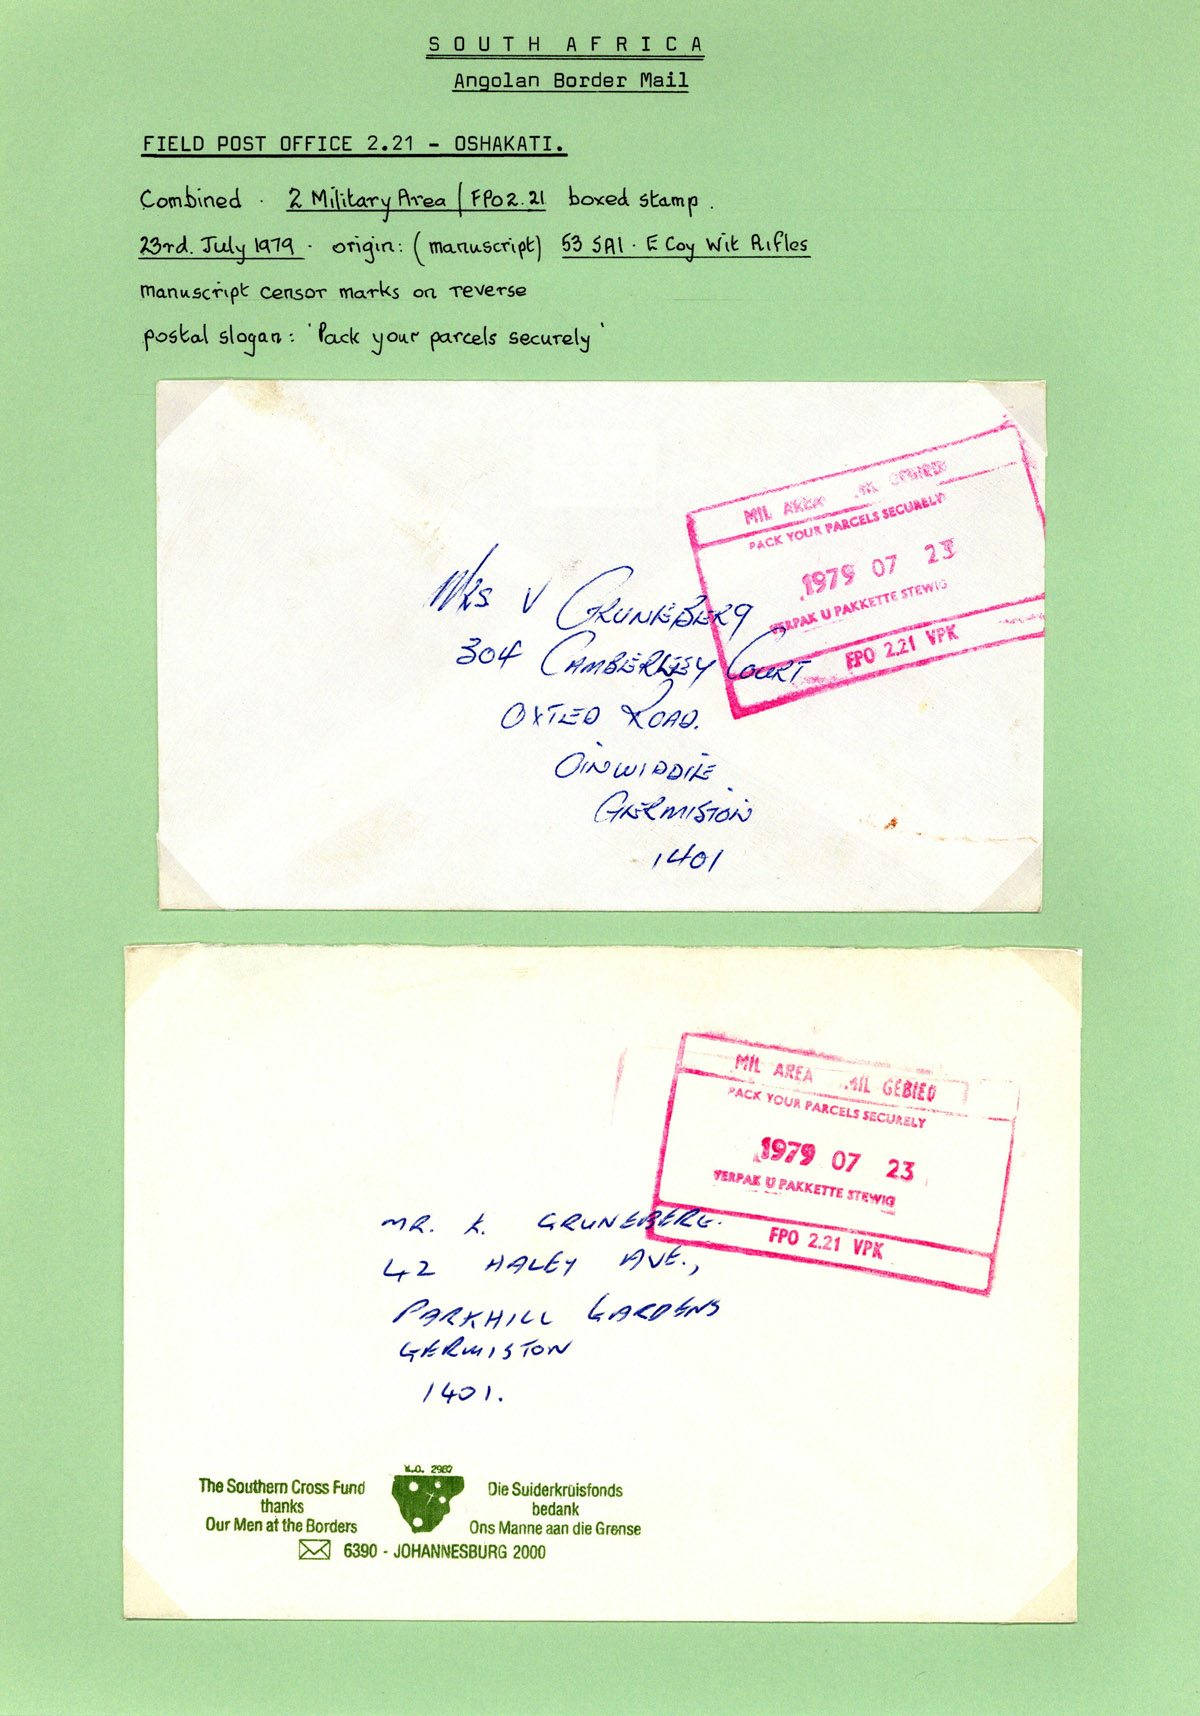 SOUTH AFRICA
Angolan Border Mail
FIELD POST OFFICE 2.21 - OSHAKATI.
Combined · 2 Military Area / FPO 2.21 boxed stamp.
23rd. July 1979 · origin: (manuscript) 53 SAI · E Coy Wit Rifles
manuscript censor marks on reverse
postal slogan: 'Pack your parcels securely'
MIL AREA MIL GEBIED
PACK YOUR PARCELS SECURELY
1979 07 23
VERPAK U PAKKETTE STEWIG
FPO 2.21 VPK
MRS V GRUNEBERG
304 CAMBERLEY COURT
OXTED ROAD.
DINWIDDIE
GERMISTON
1401
MIL AREA MIL GEBIED
PACK YOUR PARCELS SECURELY
1979 07 23
VERPAK U PAKKETTE STEWIG
FPO 2.21 VPK
MR. K. GRUNEBERG.
42 HALEY AVE.,
PARKHILL GARDENS
GERMISTON
1401.
The Southern Cross Fund
thanks
Our Men at the Borders
W.O. 2967
Die Suiderkruisfonds
bedank
Ons Manne aan die Grense
6390 - JOHANNESBURG 2000